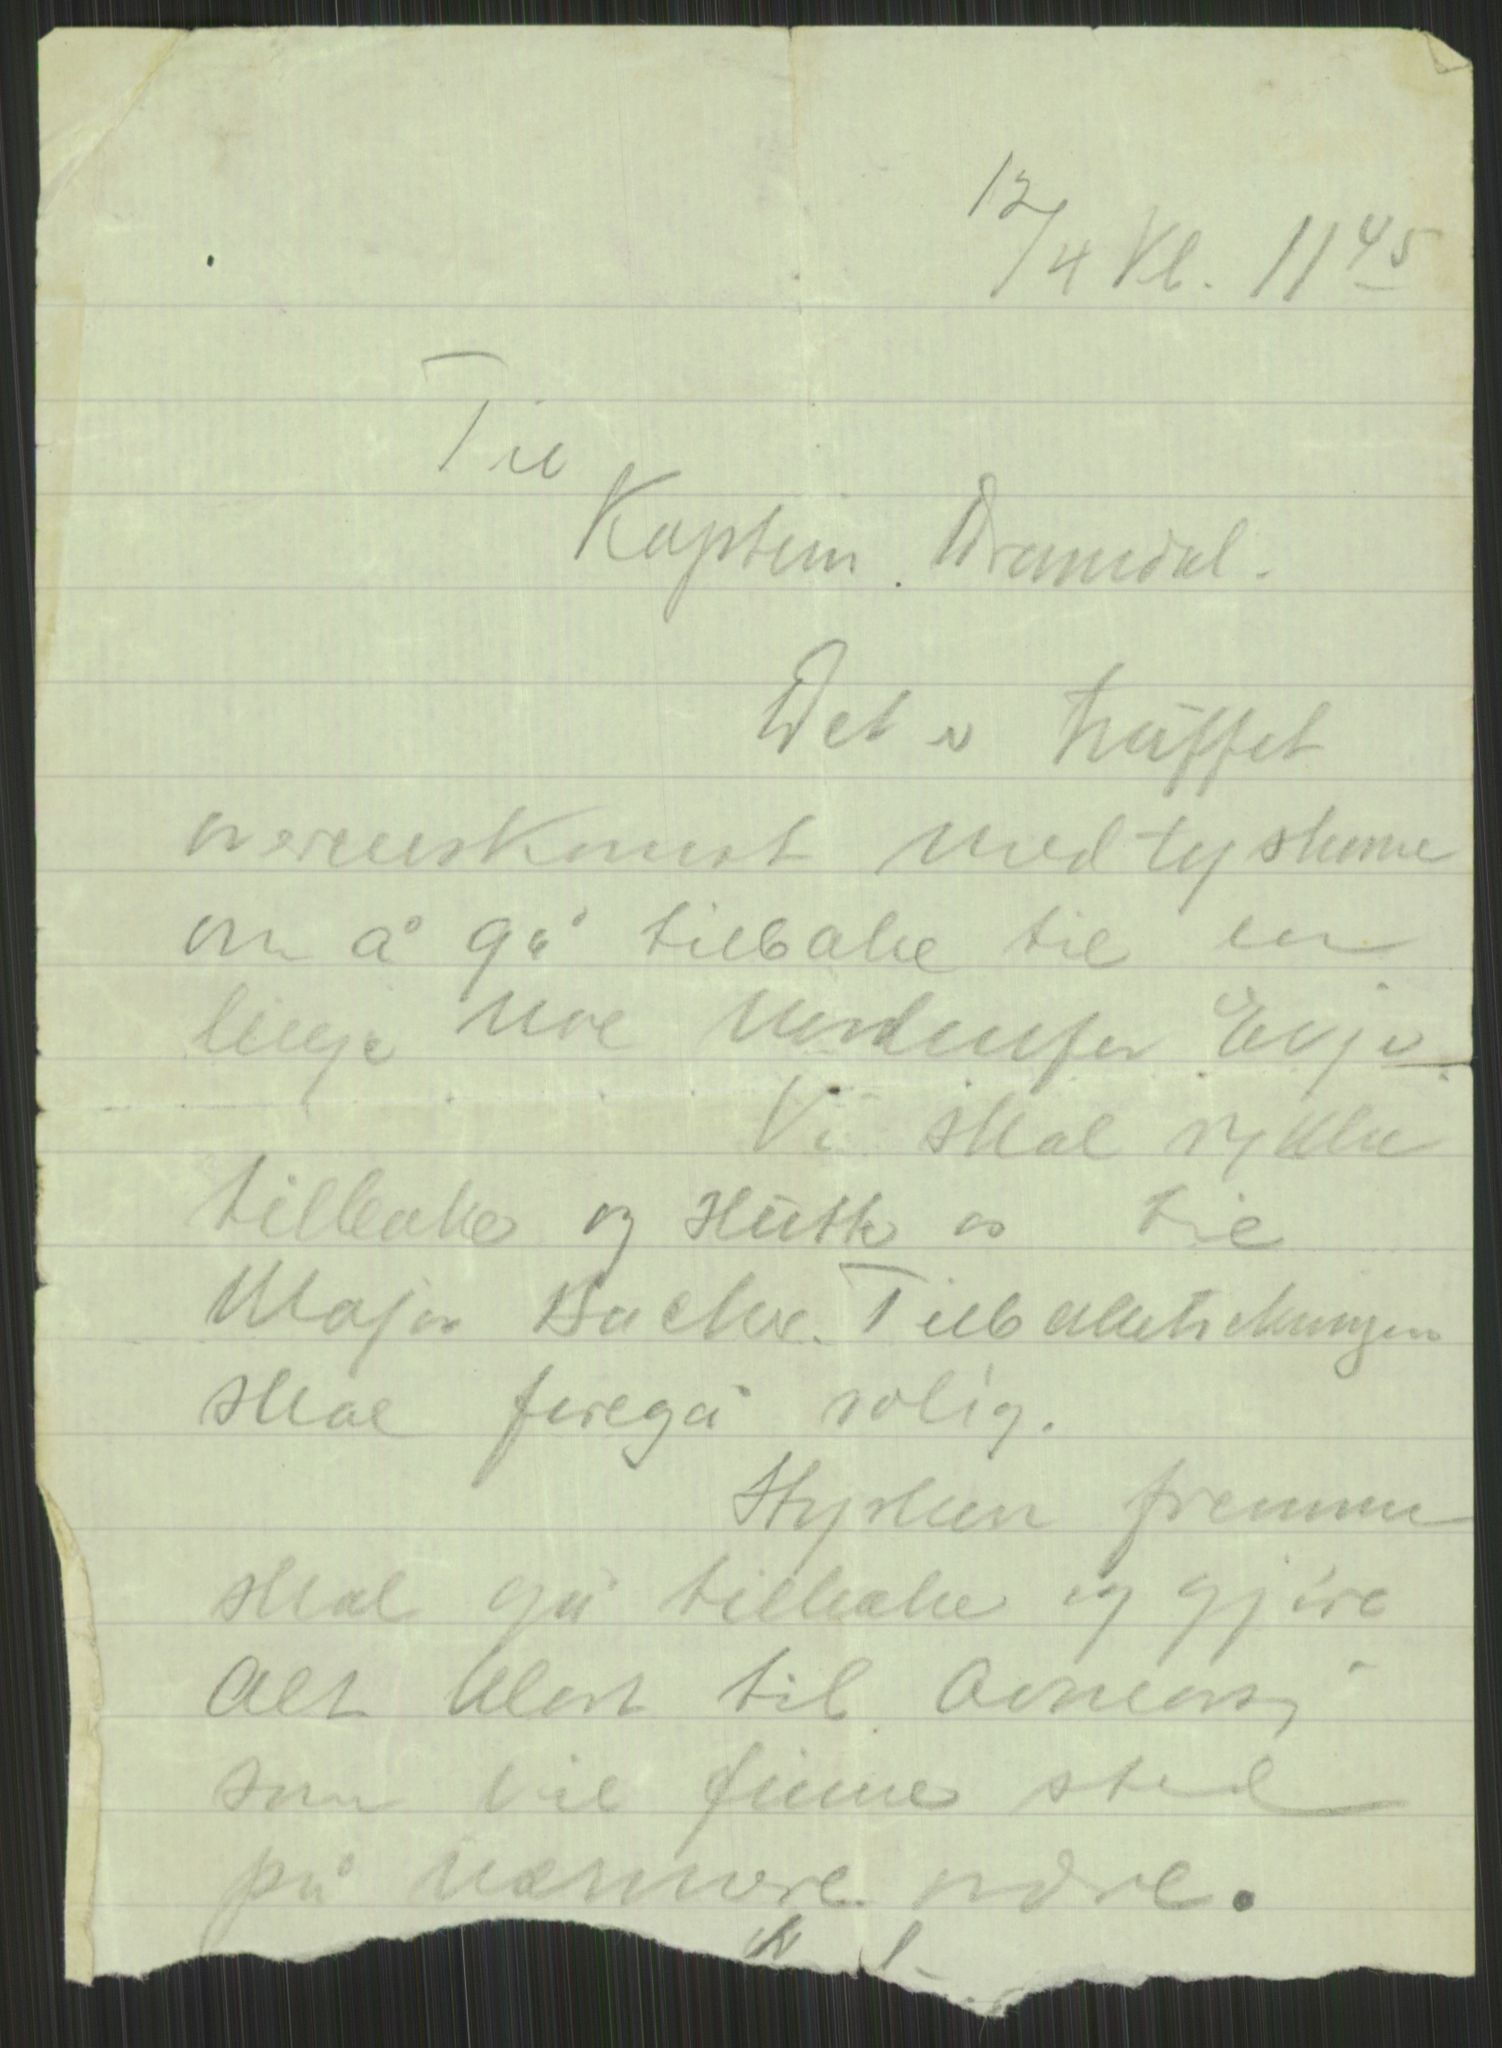 12/4 Kl. 11 45
Til
Kaptein Dramdal.
Det er truffet
overenskomst med tyskerne
om å gå tilbake til en
linje noe nordenfor Evje.
Vi skal rykke
tilbake og slutte os til
Major Bache. Tilbaketrekningen
skal foregå rolig.
Styrken fremme
skal gå tilbake og gjøre
alt klart til avmarsj
som vil finne sted
på nærmere ordre.